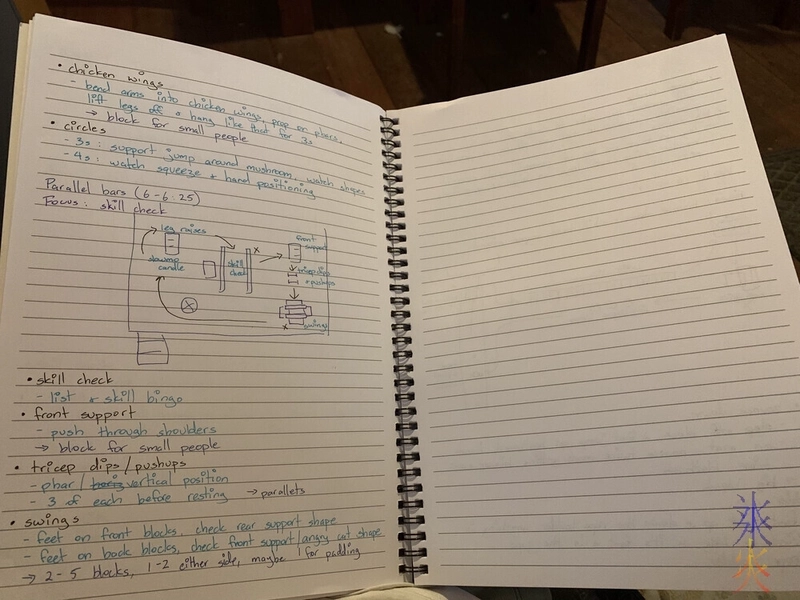 • chicken wings
- bend arms into chicken wings, prop or pbars,
lift legs off & hang like that for 3s
→ block for small people
• circles
- 3s: support jump around mushroom, watch shapes
- 4s: watch squeeze + hand positioning
Parallel bars (6-6:25)
Focus: skill check
leg raises
candle
x
skill
check
front
support
tricep dips
+ pushups
x swings
• skill check
- list + skill bingo
• front support
- push through shoulders
→ block for small people
• tricep dips/pushups
- pbar/ vertical position
- 3 of each before resting → parallets
• swings
- feet on front blocks, check rear support shape
- feet on back blocks, check front support/angry cat shape
→ 2-5 blocks, 1-2 either side, maybe 1 for padding